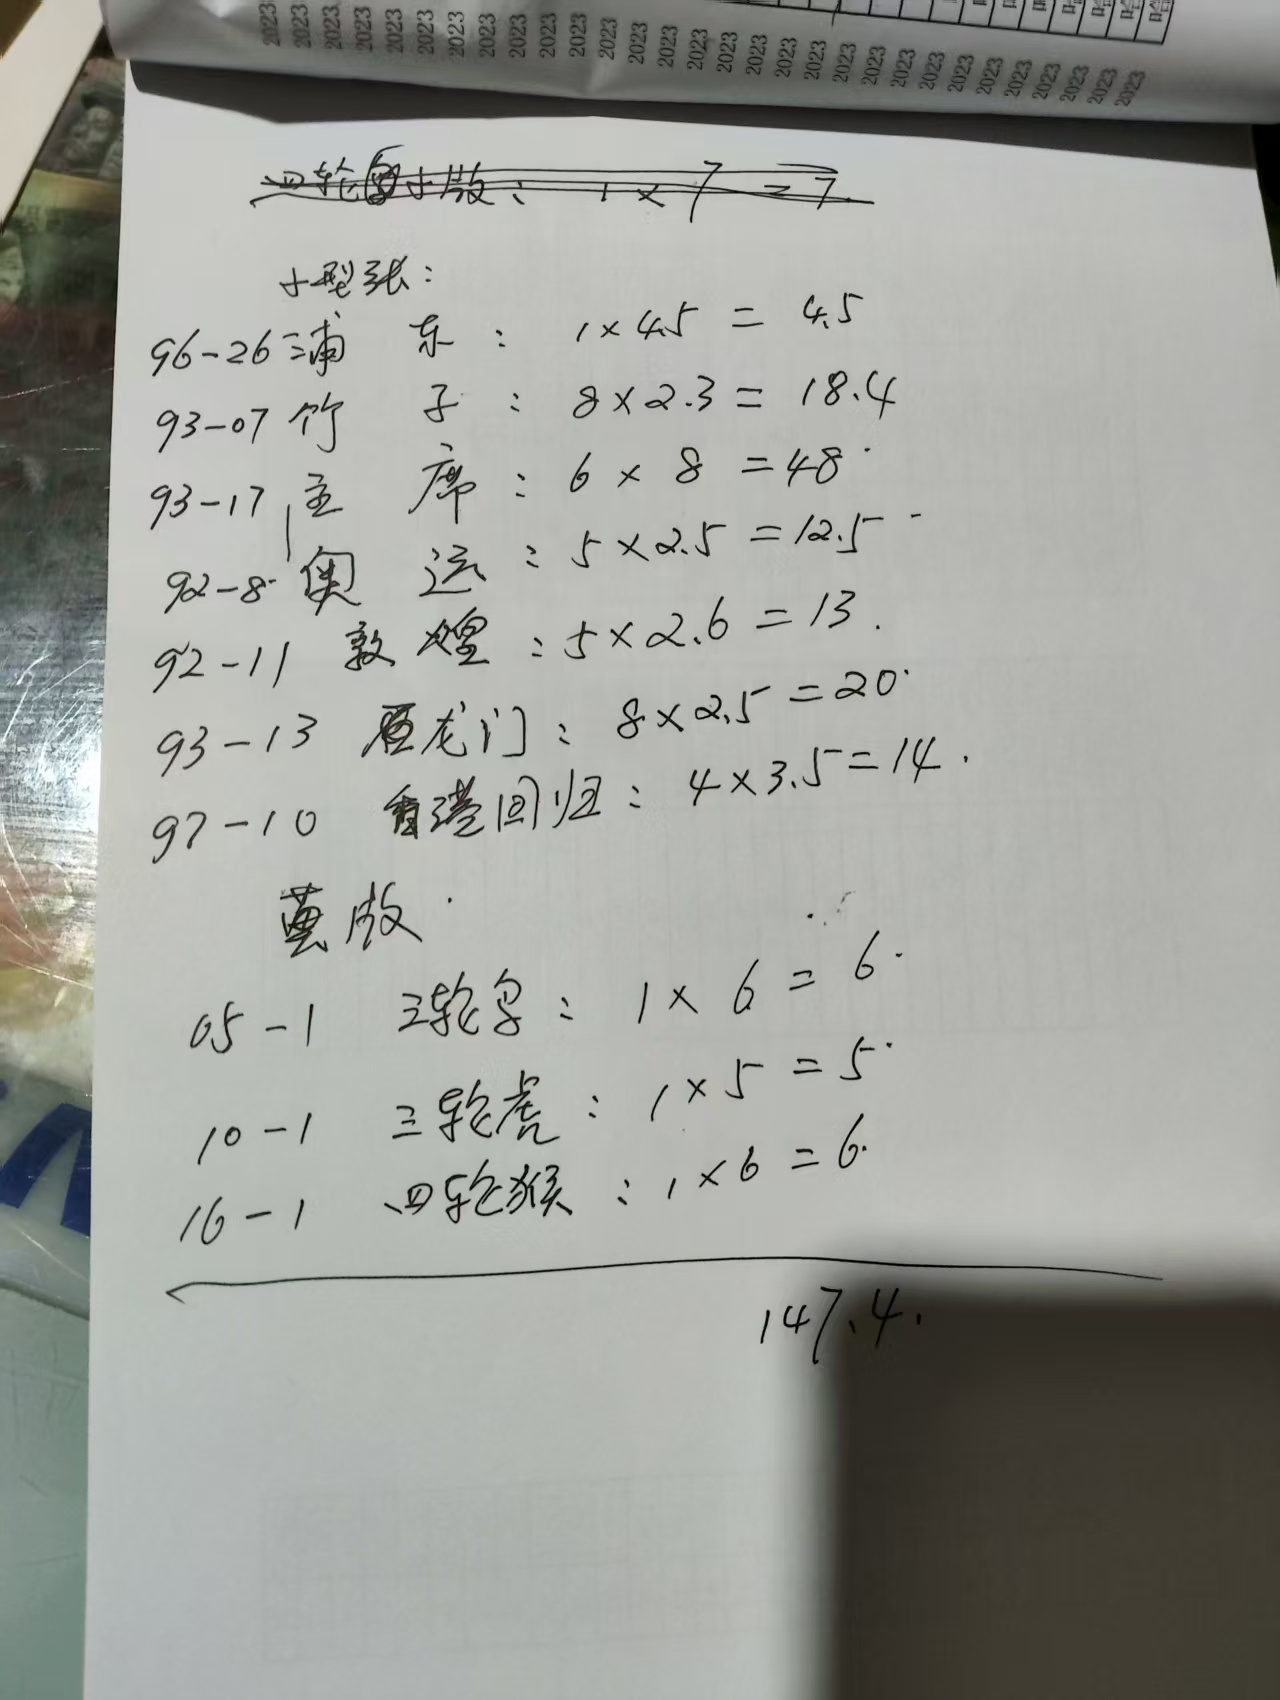 2023 2023 2023 2023 2023 2023 2023 2023 2023 2023 2023 2023 2023 2023 2023 2023 2023 2023 2023 2023 2023 2023 2023 2023 2023 2023 2023 2023 2023
四轮 小版: 1×7=7
小型张:
96-26 浦东: 1×4.5=4.5
93-07 竹子: 8×2.3=18.4
93-17 主席: 6×8=48
92-8 奥运: 5×2.5=12.5
92-11 敦煌: 5×2.6=13.
93-13 龙门: 8×2.5=20
97-10 香港回归: 4×3.5=14.
黄版
05-1 三轮: 1×6=6.
10-1 三轮虎: 1×5=5
16-1 四轮猴: 1×6=6.
147.4.